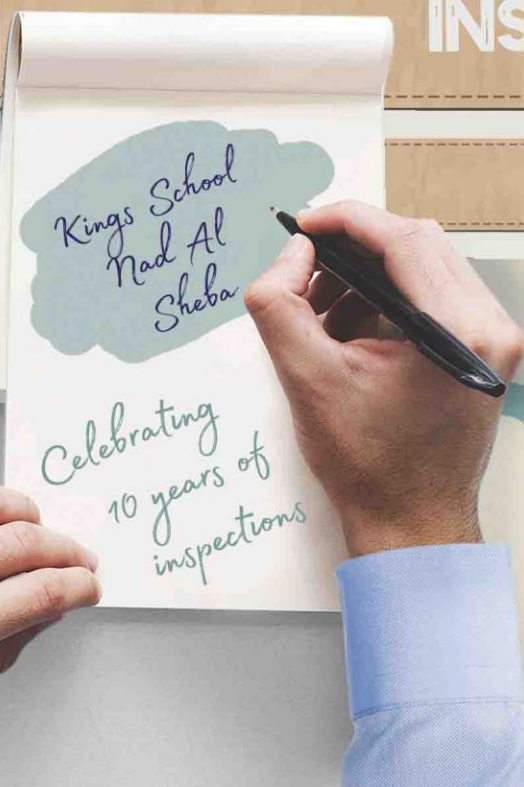 INS
Kings School
Nad Al
Sheba
Celebrating
10 years of
inspections